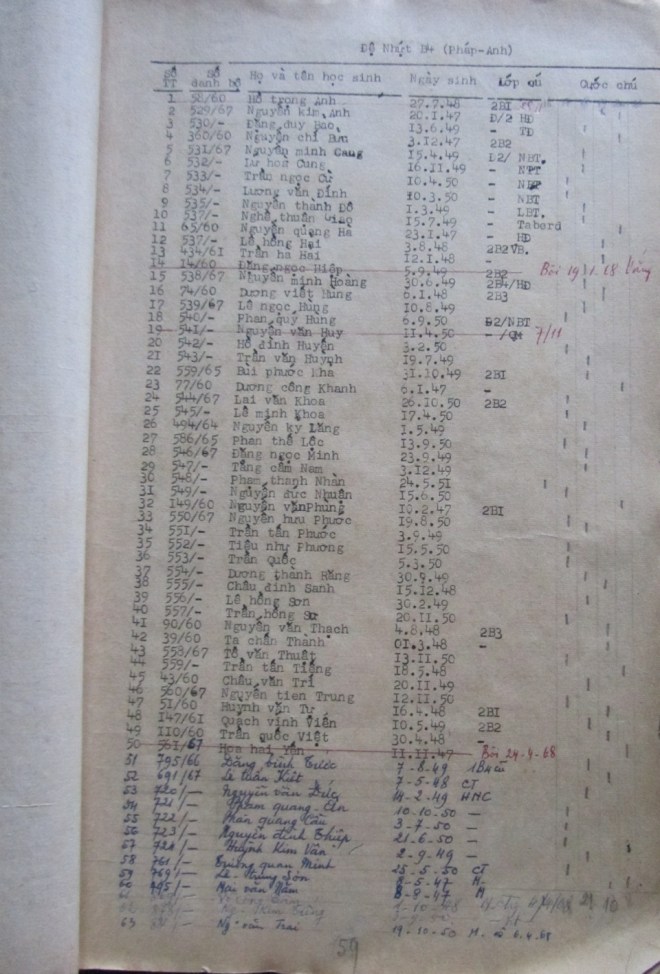 Đệ Nhứt B4 (Pháp-Anh)
Số TT Số danh bộ Họ và tên học sinh Ngày sinh Lớp cũ Cước chú
1 58/60 Hồ trọng Anh 27.7.48 2BI
2 529/67 Nguyễn kim Anh 20.I.47 Đ/2 HĐ
3 530/- Đặng duy Bảo 13.6.49 - TD
4 360/60 Nguyễn chí Bửu 3.12.47 2B2
5 531/67 Nguyễn minh Cang 15.4.49 Đ2/ NBT.
6 532/- Lư hoà Cung 16.11.49 - NTT
7 533/- Trần ngọc Cừ 10.4.50
8 534/- Lương văn Đính 10.3.50 - NBT
9 535/- Nguyễn thành Đô 1.3.49 - LBT.
10 537/- Nghê thuần 15.7.49 - Taberd
11 65/60 Nguyễn quang Hà 23.1.47 - HĐ
12 537/- Lê hồng Hải 3.8.48 2B2VB.
13 434/61 Trần hà Hải 12.1.48 -
14 14/60 Đặng ngọc Hiệp 5.9.49 2B2 Bôi 19/1.68
15 538/67 Nguyễn minh Hoàng 30.6.49 2B4/HĐ
16 74/60 Dương viết Hùng 6.1.48 2B3
17 539/67 Lê ngọc Hùng 10.8.49
18 540/- Phan quý Hùng 6.9.50 Đ2/NBT
19 541/- Nguyễn văn Huy 11.4.50 7/11
20 542/- Hồ đình Huyện 3.2.50
21 543/- Trần văn Huỳnh 19.7.49
22 559/65 Bùi phước Kha 31.10.49 2BI
23 77/60 Dương công Khanh 6.1.47 -
24 544/67 Lai văn Khoa 26.10.50 2B2
25 545/- Lê minh Khoa 17.4.50
26 494/64 Nguyễn kỳ Lăng 1.5.49
27 586/65 Phan thế Lộc 13.9.50
28 546/67 Đặng ngọc Minh 23.9.49
29 547/- Tăng cẩm Nam 3.12.49
30 548/- Phạm thanh Nhàn 24.5.51
31 549/- Nguyễn đức Nhuân 15.6.50
32 149/60 Nguyễn văn Phụng 10.2.47 2BI
33 550/67 Nguyễn hữu Phước 19.8.50
34 551/- Trần tấn Phước 3.9.49
35 552/- Tiêu như Phương 15.5.50
36 553/- Trần Quốc 5.3.50
37 554/- Dương thành Răng 30.9.49
38 555/- Châu đình Sanh 15.12.48
39 556/- Lê hồng Sơn 30.2.49
40 557/- Trần hồng Sơ 20.11.50
41 90/60 Nguyễn văn Thạch 4.8.48 2B3
42 39/60 Tạ chấn Thành 01.3.48 -
43 558/67 Tô văn Thuật 13.11.50
44 559/- Trần tấn Tiếng 18.5.48
45 43/60 Châu văn Trí 20.11.49
46 560/67 Nguyễn tien Trung 12.11.50
47 51/60 Huỳnh văn Tư 16.4.48 2BI
48 147/61 Quách vinh Viễn 10.5.49 2B2
49 110/60 Trần quốc Việt 30.4.48 -
50 561/67 Hoa hải Yến 11.11.47 Bôi 24-4-68
51 795/66 Đặng bỉnh Trức 7-8-49
52 691/67 Lê tuấn Kiệt 7-5-48 CT
53 720/- Nguyễn văn Đức 14-2-49 HMC
54 721/- Phạm quang 10-10-50 -
55 722/- Phan quang 3-7-50 -
56 723/- Nguyễn đình Thiệp 21-6-50 -
57 724/- Huỳnh Kim Vân 2-9-49 -
58 761/- Trương quan Minh 25-5-50 CT
59 769/- Lê trung Sơn 8-5-47 M.
60 795/- Mai văn Năm 8-8-47 M
63 Ng̃ văn Trai 19-10-50 M. 6.4.68
59